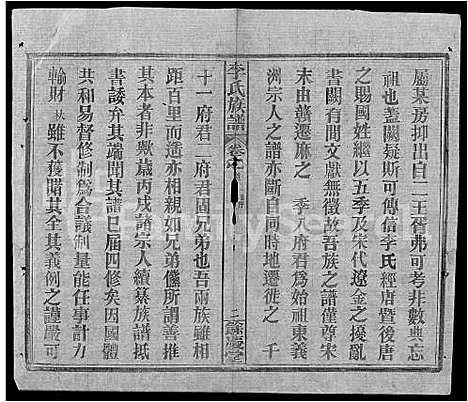 屬某房抑出自二王胥弗可考非數典忘
祖也蓋闕疑斯可傳信李氏經唐暨後唐
之賜國姓繼以五季及宋代遼金之擾亂
書闕有間文獻無徵故吾族之譜僅尊宋
末由贛遷麻之　季八府君爲始祖東義
洲宗人之譜亦斷自同時地遷徙之　千
李氏族譜
卷之
二
餘慶堂
十一府君二府君固兄弟也吾兩族雖相
距百里而遙亦相親如兄弟儻所謂善推
其本者非歟歲丙戌諸宗人續纂族譜抵
書諉弁其端聞其譜已屆四修矣因國體
共和易督修制爲合議制量能任事計力
輸財㭜雖不獲睹其全其義例之謹嚴可